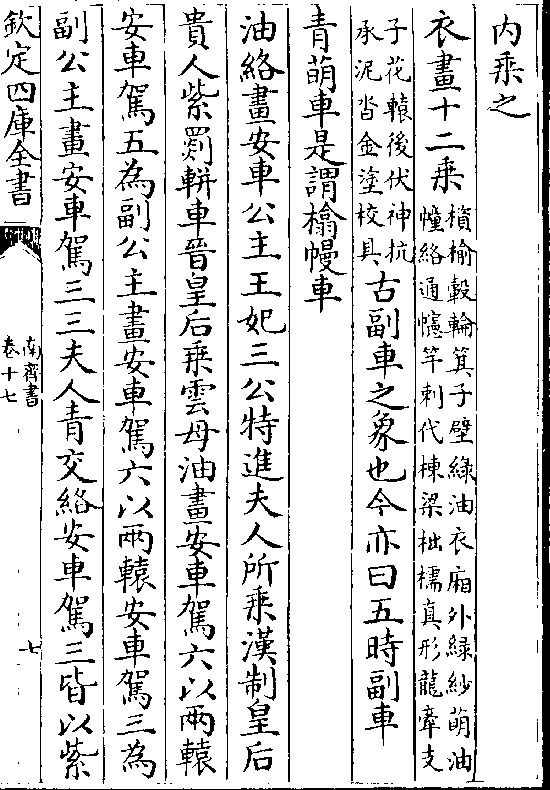 内乘之
衣畫十二乘
檳榆轂輪箕子壁綠油衣廂外綠紗萌油
幢絡通幰竿刺代棟梁柮檽真形龍牽支
子花轅後伏神抗
承泥沓金塗校具
古副車之象也今亦曰五時副車
青萌車是謂搨幔車
油絡畫安車公主王妃三公特進夫人所乘漢制皇后
貴人紫罽軿車晉皇后乘雲母油畫安車駕六以兩轅
安車駕五為副公主畫安車駕六以兩轅安車駕三為
副公主畫安車駕三三夫人青交絡安車駕三皆以紫
欽定四庫全書
南齊書
卷十七
七